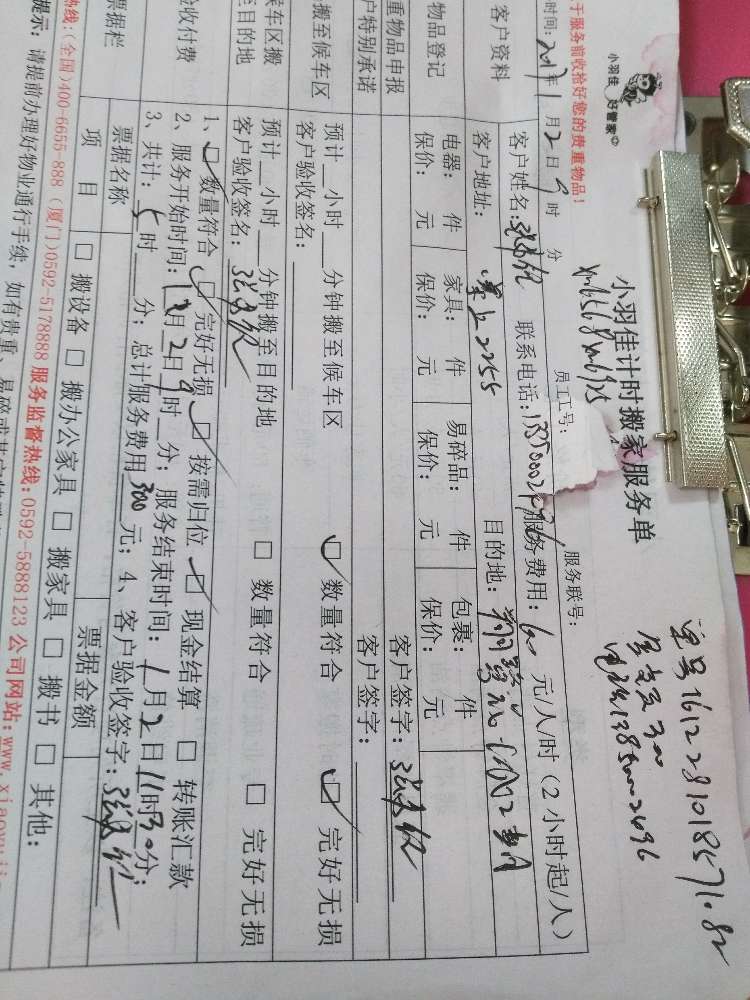 小羽佳 好管家
小羽佳计时搬家服务单
于服务前收拾好您的贵重物品!
员工工号:
服务联号:
时间: 2017年1月2日9时 分
单号1612281018571082
300
电话13850002496
客户资料
客户姓名: 联系电话: 服务费用: 60 元/人/时(2小时起/人)
客户地址: 2255 目的地:
物品登记
电器: 件 家具: 件 易碎品: 件 包裹: 件
保价: 元 保价: 元 保价: 元 保价: 元
重物品申报
客户签字:
户特别承诺
客户签字:
搬至候车区
预计__小时__分钟搬至候车区 数量符合 完好无损
客户验收签名:
候车区搬
至目的地
预计__小时__分钟搬至目的地 数量符合 完好无损
客户验收签名:
验收付费
1、 数量符合 完好无损 按需归位 现金结算 转账汇款
2、服务开始时间: 1月2日9时__分; 服务结束时间: 1月2日11时30分;
3、共计: 5时__分; 总计服务费用300元; 4、客户验收签字:
票据栏
票据名称 票据金额
项目 搬设备 搬办公家具 搬家具 搬书 其他:
热线:(全国)400-6655-888 (厦门)0592-5178888 服务监督热线:0592-5888123 公司网站:www.xiaoyuji
提示: 请提前办理好物业通行手续, 如有贵重、易碎或其它